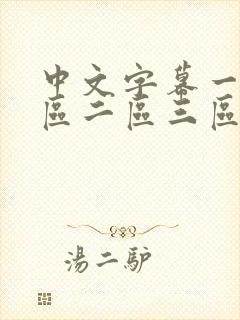 中文字幕一
區二區三區
湯二驴